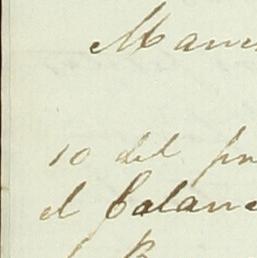 Manu
10 del pr
el Balan